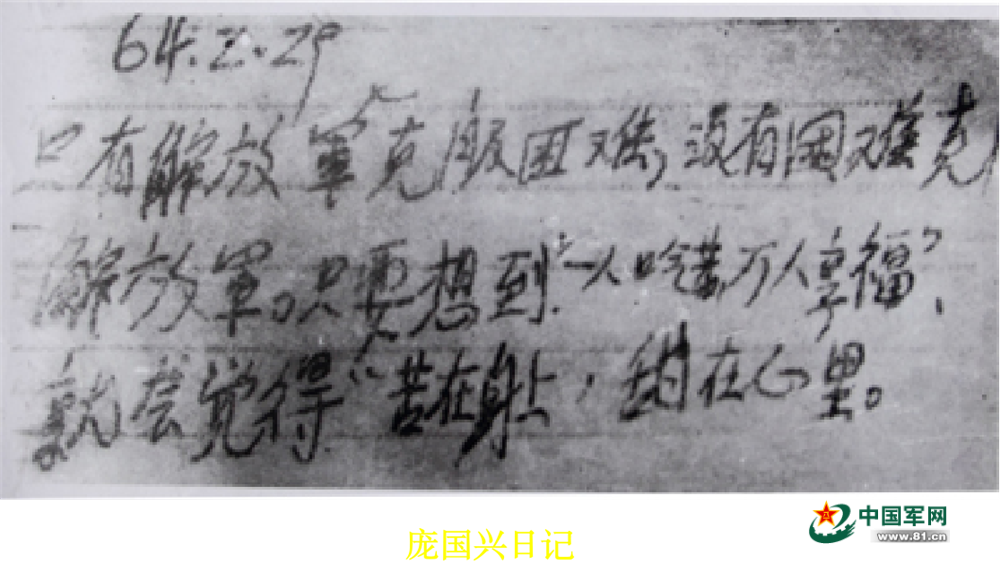 64.2.29
只有解放军克服困难，没有困难克
解放军。只要想到“一人吃苦万人享福”，
就会觉得“苦在身上，甜在心里。
庞国兴日记
中国军网
www.81.cn